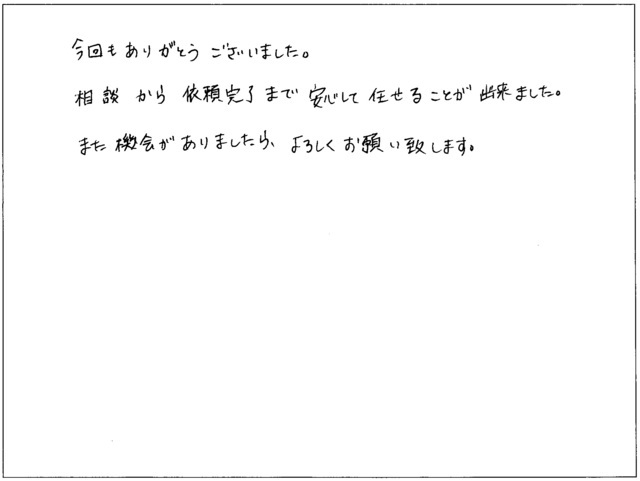 今回もありがとうございました。
相談から依頼完了まで安心して任せることが出来ました。
また機会がありましたら、よろしくお願い致します。